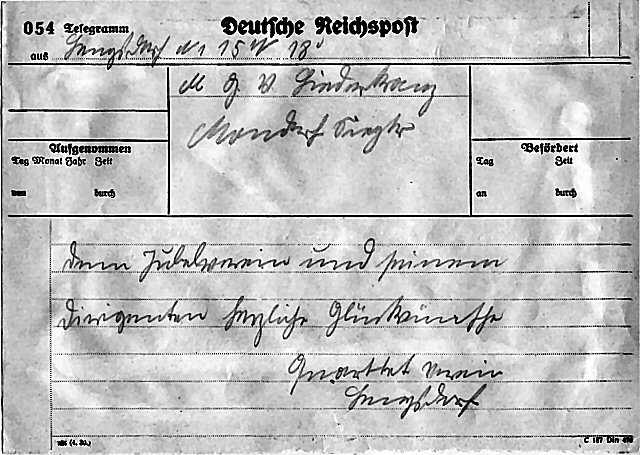 054 Telegramm Deutsche Reichspost
aus Lengsdorf
M G V Liederkranz
Mondorf Siegkr
Aufgenommen
Tag Monat Jahr Zeit
von durch
Befördert
Tag Zeit
an durch
dem Jubelverein und seinem
Dirigenten herzliche Glückwünsche
Quartett verein
Lengsdorf
C 187 Din